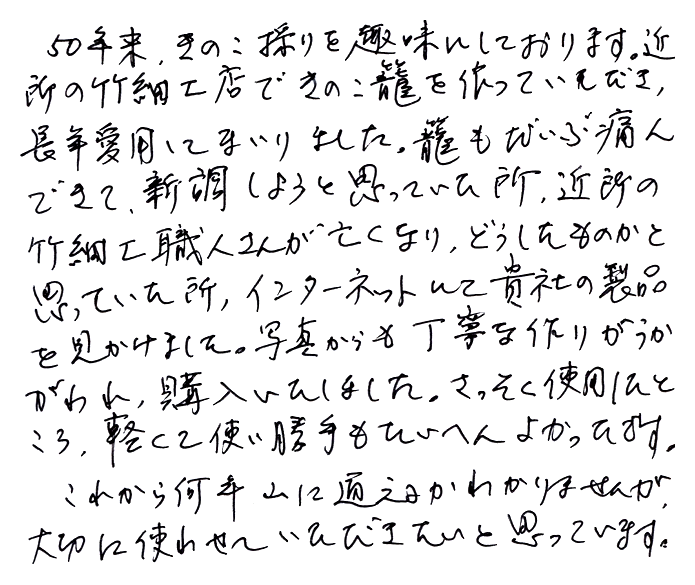 50年来、きのこ採りを趣味にしております。近
所の竹細工店できのこ籠を作っていただき、
長年愛用してまいりました。籠もだいぶ痛ん
できて、新調しようと思っていた所、近所の
竹細工職人さんが亡くなり、どうしたものかと
思っていた所、インターネットにて貴社の製品
を見かけました。写真からも丁寧な作りがうか
がわれ、購入いたしました。さっそく使用したと
ころ、軽くて使い勝手もたいへんよかったです。
これから何年山に通えるかわかりませんが、
大切に使わせていただきたいと思っています。